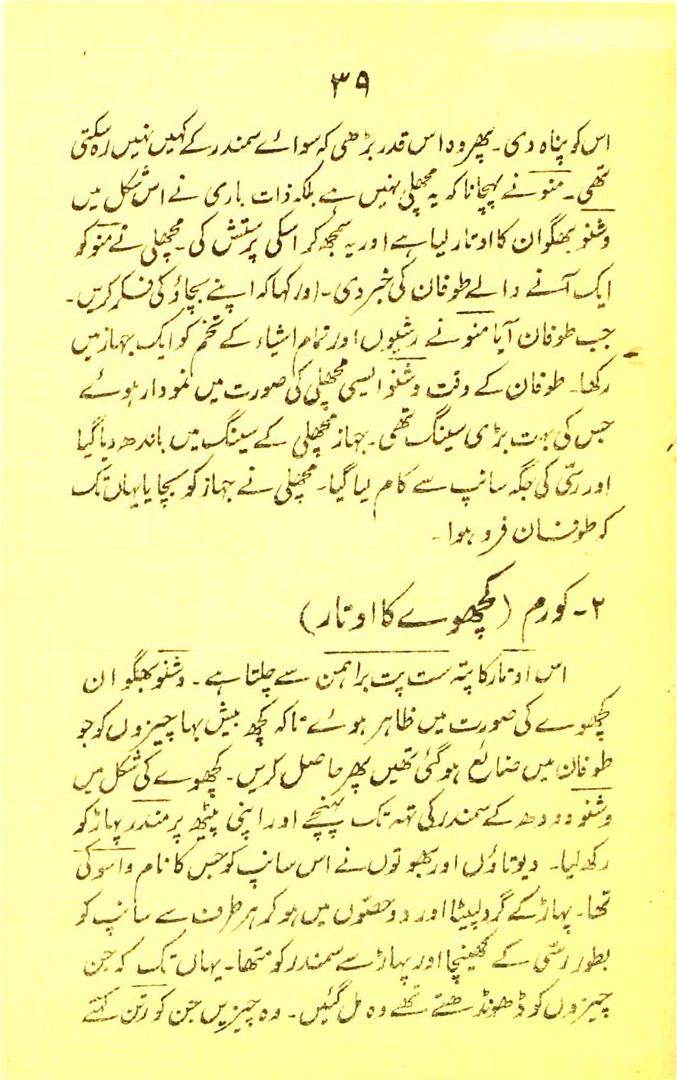 ۳۹
اس کو پناہ دی۔ پھر وہ اس قدر بڑھی کہ سوائے سمندر کے کہیں نہیں رہ سکتی
تھی۔ منو نے پہچانا کہ یہ مچھلی نہیں ہے بلکہ ذات باری نے اس شکل میں
وشنو بھگوان کا اوتار لیا ہے اور یہ سمجھ کر اسکی پرستش کی۔ مچھلی نے منو کو
ایک آنے والے طوفان کی خبر دی۔ اور کہا کہ اپنے بچاؤ کی فکر کریں۔
جب طوفان آیا منو نے رشیوں اور تمام اشیاء کے تخم کو ایک جہاز میں
رکھا۔ طوفان کے وقت وشنو ایسی مچھلی کی صورت میں نمودار ہوئے
جس کی بہت بڑی سینگ تھی۔ جہاز مچھلی کے سینگ میں باندھ دیا گیا
اور رسّی کی جگہ سانپ سے کام لیا گیا۔ مچھلی نے جہاز کو بچایا یہاں تک
کہ طوفان فرو ہوا۔
۲۔ کورم (کچھوے کا اوتار)
اس اوتار کا پتہ ست پت براہمن سے چلتا ہے۔ وشنو بھگوان
کچھوے کی صورت میں ظاہر ہوئے تاکہ کچھ بیش بہا چیزوں کو جو
طوفان میں ضائع ہو گئی تھیں پھر حاصل کریں۔ کچھوے کی شکل میں
وشنو دودھ کے سمندر کی تہہ تک پہنچے اور اپنی پیٹھ پر مندر پہاڑ کو
رکھ لیا۔ دیوتاؤں اور بھوتوں نے اس سانپ کو جس کا نام واسوکی
تھا۔ پہاڑ کے گرد لپیٹا اور دو حصّوں میں ہو کر ہر طرف سے سانپ کو
بطور رسّی کے کھینچا اور پہاڑ سے سمندر کو متھا۔ یہاں تک کہ جن
چیزوں کو ڈھونڈھتے تھے وہ مل گئیں۔ وہ چیزیں جن کو رتن کہتے